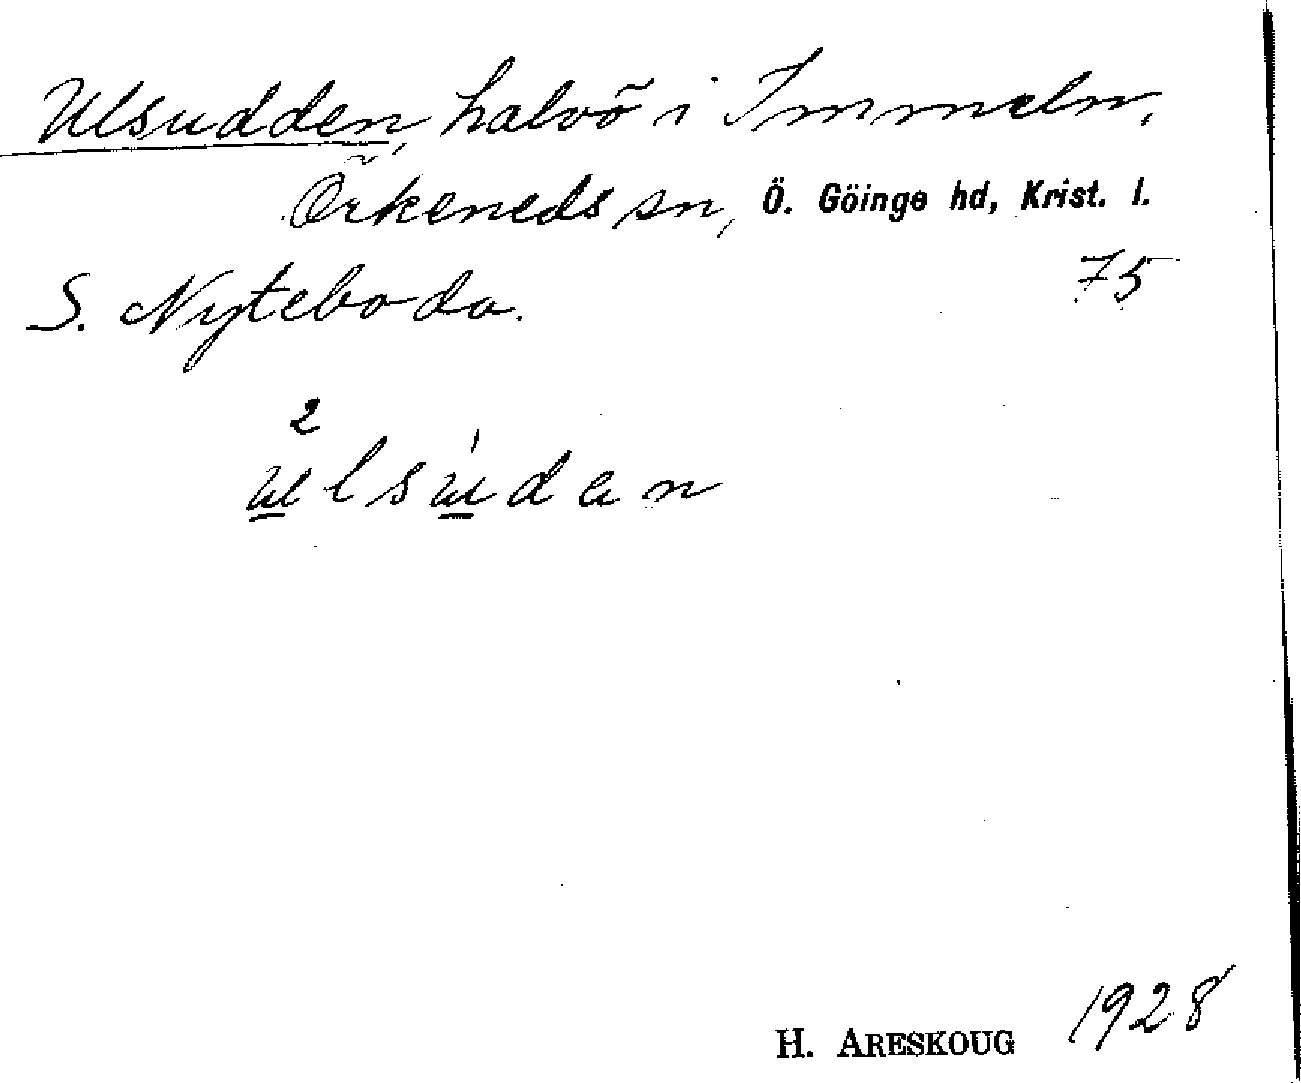 Ulsudden, halvö i Immeln,
Örkeneds sn, Ö. Göinge hd, Krist. l.
S. Nyteboda. 75
2
ulsúdan
H. ARESKOUG 1928